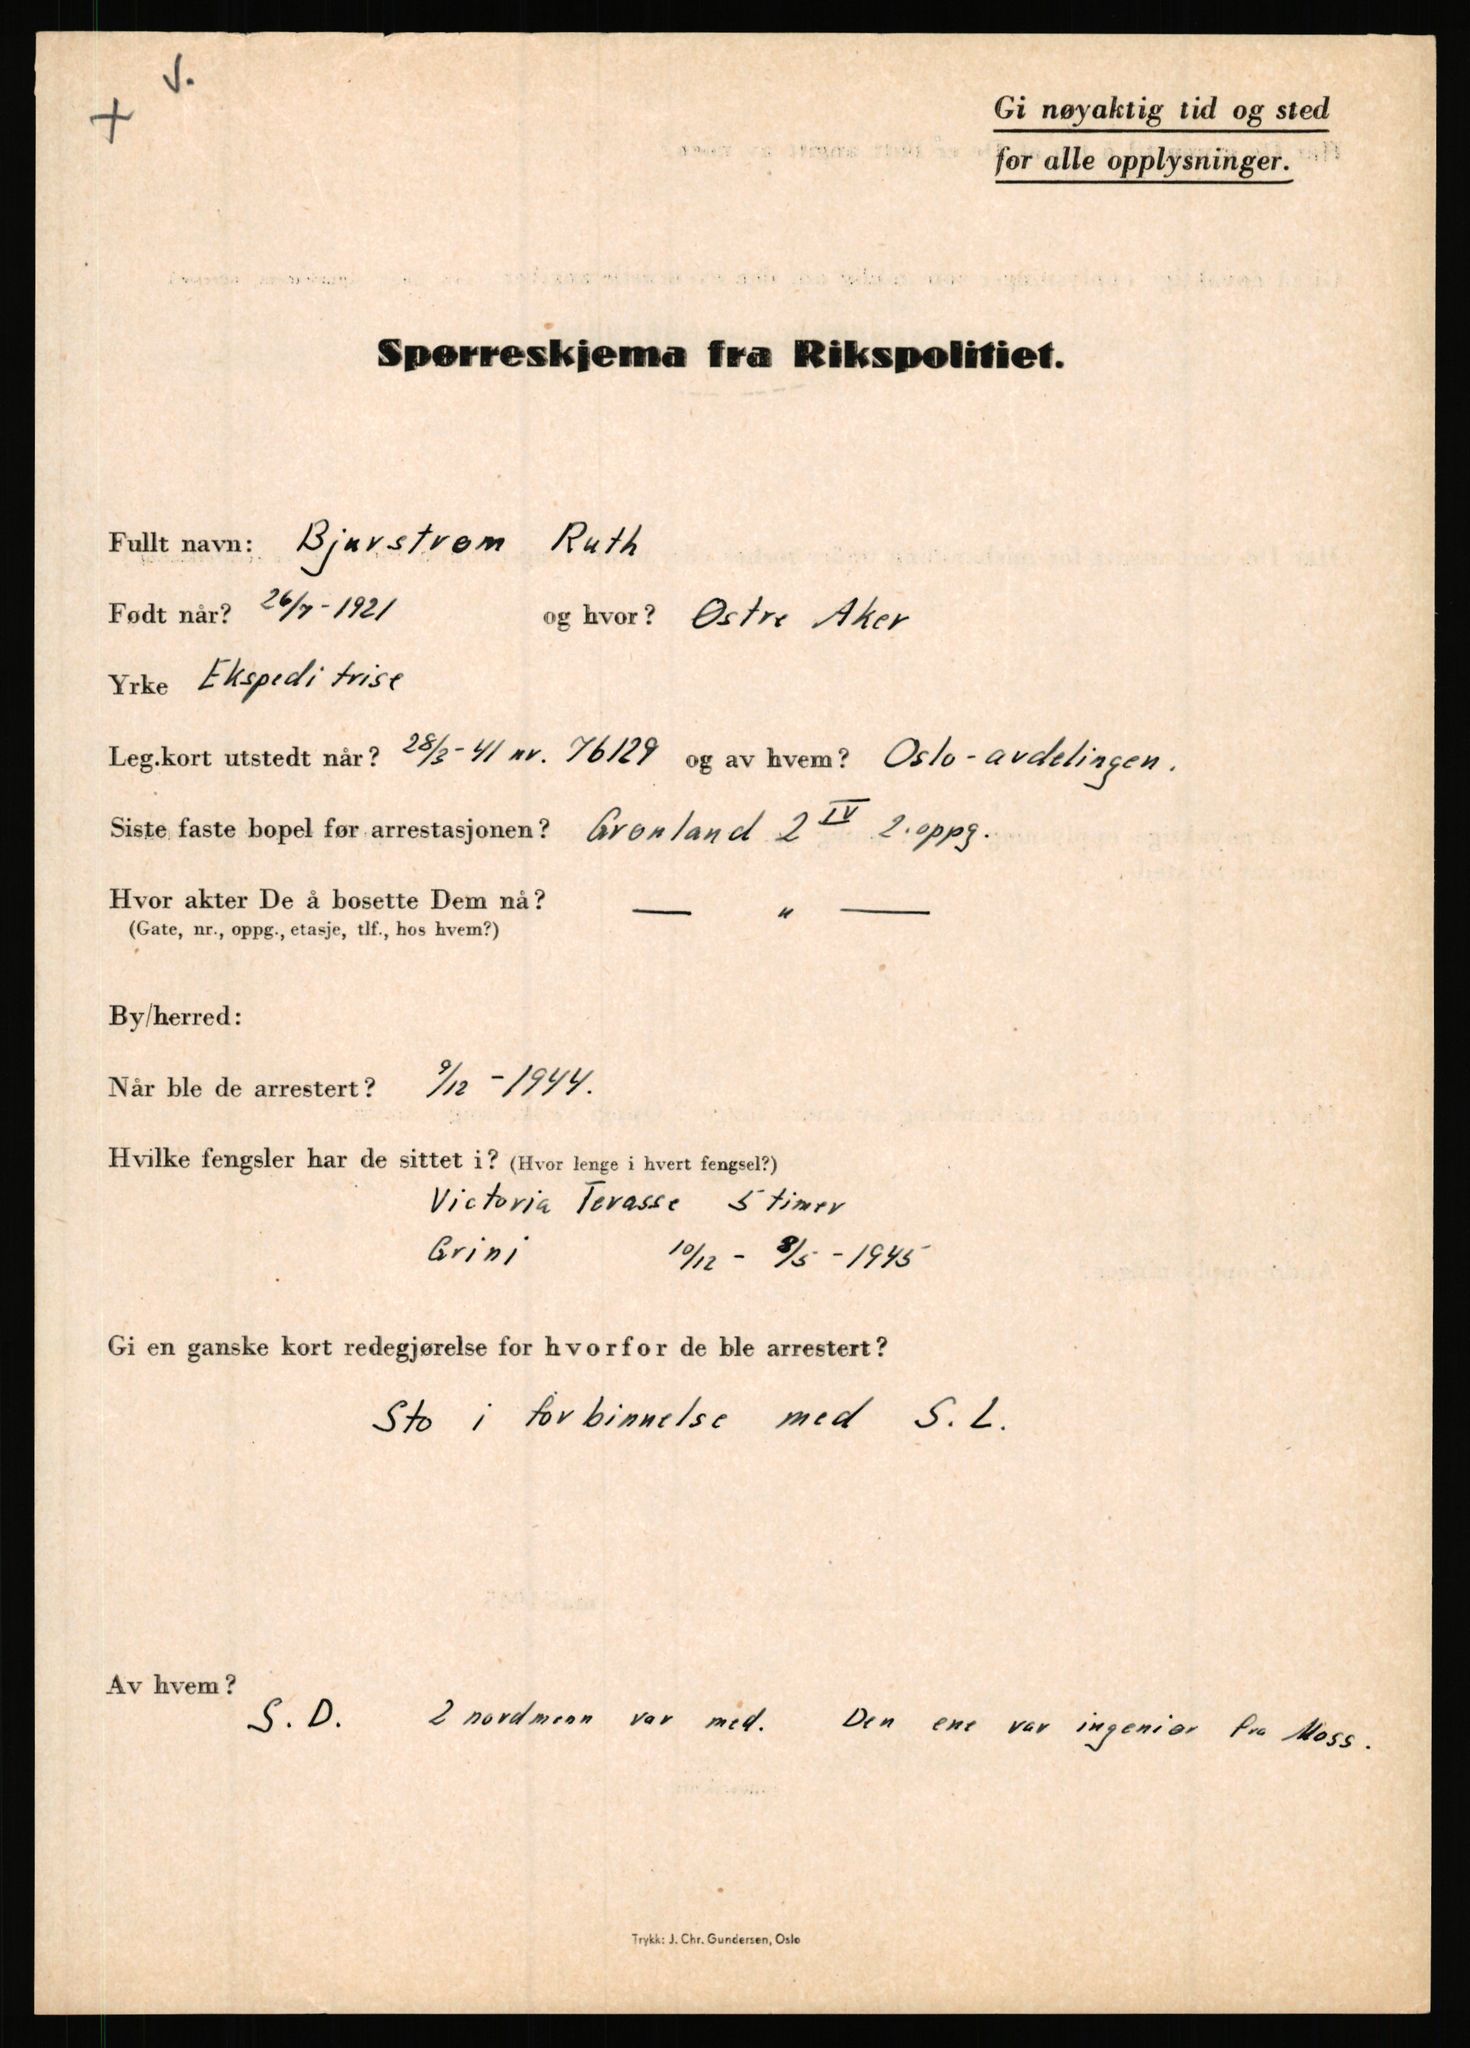 J.
+
Gi nøyaktig tid og sted
for alle opplysninger.
Spørreskjema fra Rikspolitiet.
Fullt navn: Bjurstrøm Ruth
Født når? 26/7-1921 og hvor? Østre Aker
Yrke Ekspeditrise
Leg.kort utstedt når? 28/3-41 nr. 76129 og av hvem? Oslo-avdelingen.
Siste faste bopel før arrestasjonen? Grønland 2 IV 2. oppg.
Hvor akter De å bosette Dem nå? — " —
(Gate, nr., oppg., etasje, tlf., hos hvem?)
By/herred:
Når ble de arrestert? 9/12 - 1944.
Hvilke fengsler har de sittet i? (Hvor lenge i hvert fengsel?)
Victoria Terasse 5 timer
Grini 10/12 - 8/5 - 1945
Gi en ganske kort redegjørelse for hvorfor de ble arrestert?
Sto i forbinnelse med S. L.
Av hvem?
S. D. 2 nordmenn var med. Den ene var ingeniør fra Moss.
Trykk: J. Chr. Gundersen, Oslo